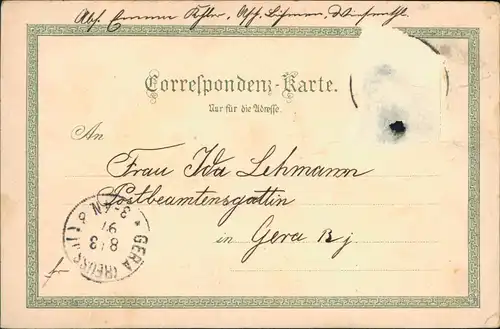 Abs. Emma
Correspondenz-Karte.
Nur für die Adresse.
An
Frau Ida Lehmann
Postbeamtensgattin
in Gera Rj
GERA (REUSS)
8 3
97
3-4 N